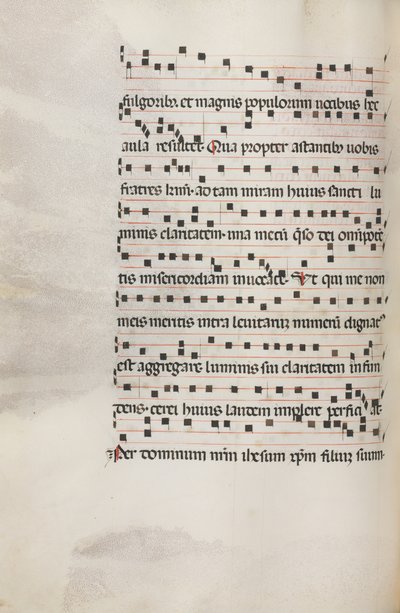 fulgorib9. et magnis populorum uocibus hec
aula resultet. Qua propter astantib9 uobis
fratres kr̄mi. ad tam miram huius sancti lu
minis claritatem. una mecū q̄so dei om̄ipotē
tis misericordiam inuocate. Vt qui me non
meis meritis intra leuitarū numerū dignat9
est aggregare luminis sui claritatem infun
dens. cerei huius laudem implere perficiat.
Per dominum nr̄m ih̄esum xp̄m filiū suum.